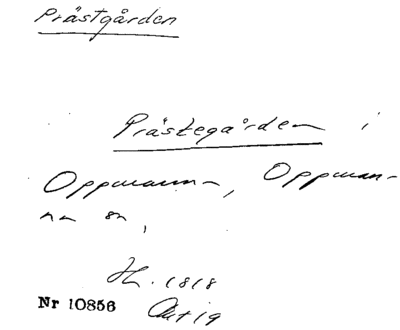 Prästgården
Prästegården i
Oppmanna, Oppman-
na sn,
H. 1818
Nr 10856 Akt 19